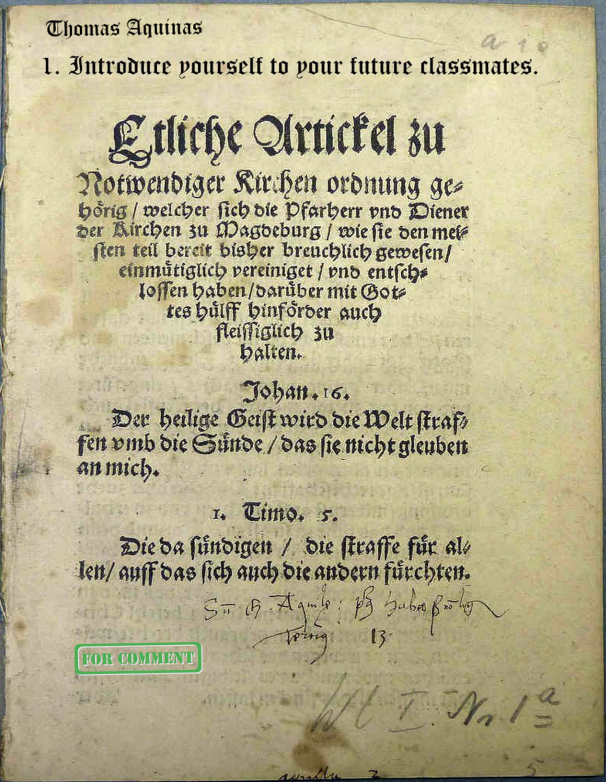 Thomas Aquinas
a 10
1. Introduce yourself to your future classmates.
Etliche Artickel zu
Notwendiger Kirchen ordnung ge⸗
hörig / welcher sich die Pfarherr vnd Diener
der Kirchen zu Magdeburg / wie sie den mei⸗
sten teil bereit bisher breuchlich gewesen /
einmütiglich vereiniget / vnd entsch⸗
lossen haben / darüber mit Got⸗
tes hülff hinförder auch
fleissiglich zu
halten.
Johan. 16.
Der heilige Geist wird die Welt straf⸗
fen vmb die Sünde / das sie nicht gleuben
an mich.
1. Timo. 5.
Die da sündigen / die straffe für al⸗
len / auff das sich auch die andern fürchten.
13
FOR COMMENT
I. Nr. 1 a